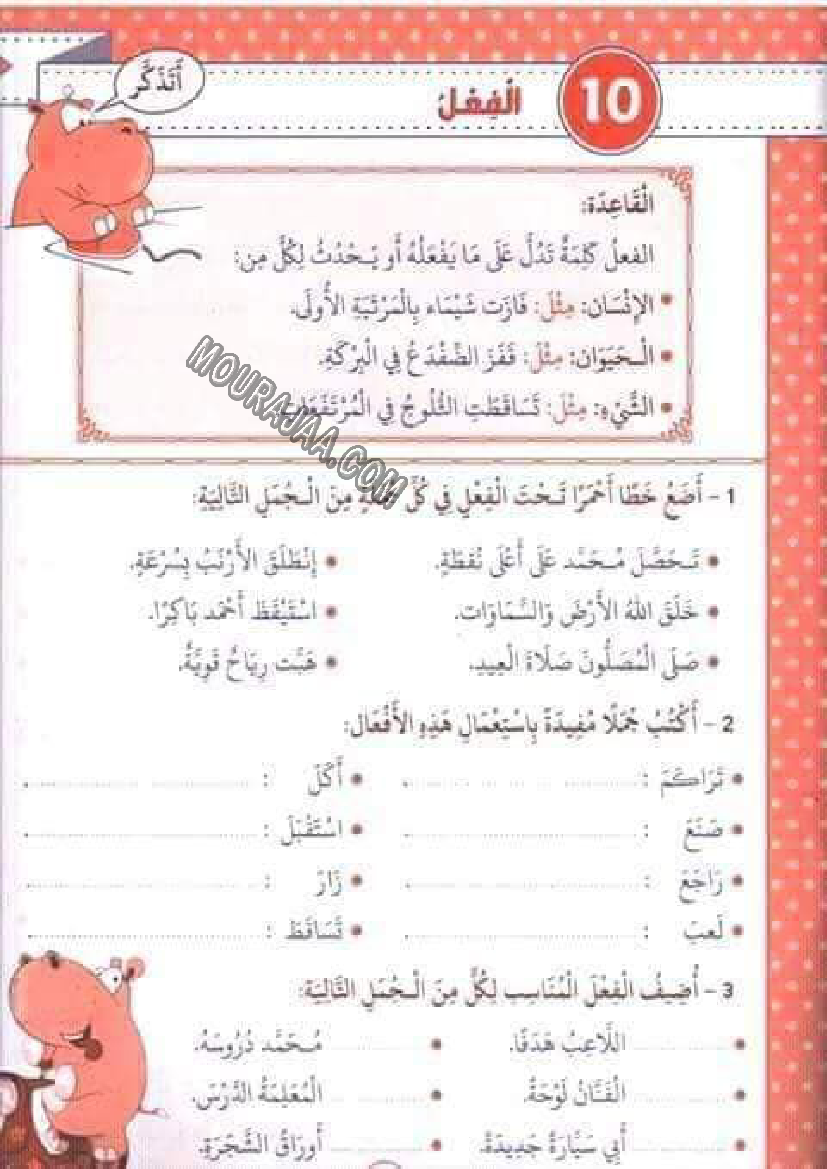 أَتَذَكَّر
10 الْفِعْلُ
الْقَاعِدَة:
الفعلُ كَلِمَةٌ تَدُلُّ عَلَى مَا يَفْعَلُهُ أَو يَحْدُثُ لِكُلٍّ مِن:
• الإِنْسَان: مِثْلَ: فَازَت شَيْمَاء بِالْمَرْتَبَةِ الأُولَى.
• الْحَيَوَان: مِثْلَ: قَفَزَ الضِّفْدَعُ فِي الْبِرْكَةِ.
• الشَّيْءِ: مِثْلَ: تَسَاقَطَتِ الثُّلُوجُ فِي الْمُرْتَفَعَاتِ
MOURAJAA.COM
1 - أَضَعُ خَطًّا أَحْمَرًا تَحْتَ الْفِعْلِ فِي كُلِّ جُمْلَةٍ مِنَ الْجُمَلِ التَّالِيَةِ:
• تَحَصَّلَ مُحَمَّد عَلَى أَعْلَى نُقطَةٍ. • إِنْطَلَقَ الأَرْنَبُ بِسُرْعَةٍ.
• خَلَقَ اللهُ الأَرْضَ وَالسَّمَاوَات. • اسْتَيْقَظَ أَحْمَد بَاكِرًا.
• صَلَى الْمُصَلُّونَ صَلَاةَ الْعِيدِ. • هَبَّت رِيَاحٌ قَوِيَّةٌ.
2 - أَكْتُبُ جُمَلًا مُفِيدَةً بِاسْتِعْمَالِ هَذِهِ الأَفْعَال:
• تَرَاكَمَ : .......... • أَكَلَ : ..........
• صَنَعَ : .......... • اسْتَقْبَلَ : ..........
• رَاجَعَ : .......... • زَارَ : ..........
• لَعبَ : .......... • تَسَاقَطَ : ..........
3 - أُضِيفُ الْفِعْلَ الْمُنَاسِب لِكُلٍّ مِنَ الْجُمَلِ التَّالِيَة:
• .......... اللَّاعِبُ هَدَفًا. • .......... مُحَمَّد دُرُوسَهُ.
• .......... الْفَنَّانُ لَوْحَةً. • .......... الْمُعَلِمَةُ الدَّرْسَ.
• .......... أَبِي سَيَّارَةً جَدِيدَةً. • .......... أَورَاقُ الشَّجَرَةِ.